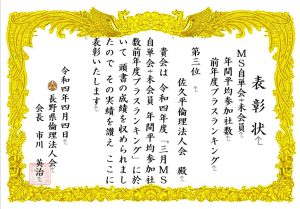 表彰状
MS自単会+未会員
年間平均参加社数
前年度プラスランキング
第三位
佐久平倫理法人会 殿
貴会は 令和四年度「三月MS
自単会+未会員 年間平均参加社
数前年度プラスランキング」に於
いて 頭書の成績を収められまし
たので その実績を讃え ここに
表彰いたします
令和四年四月四日
長野県倫理法人会
会長 市川 英治